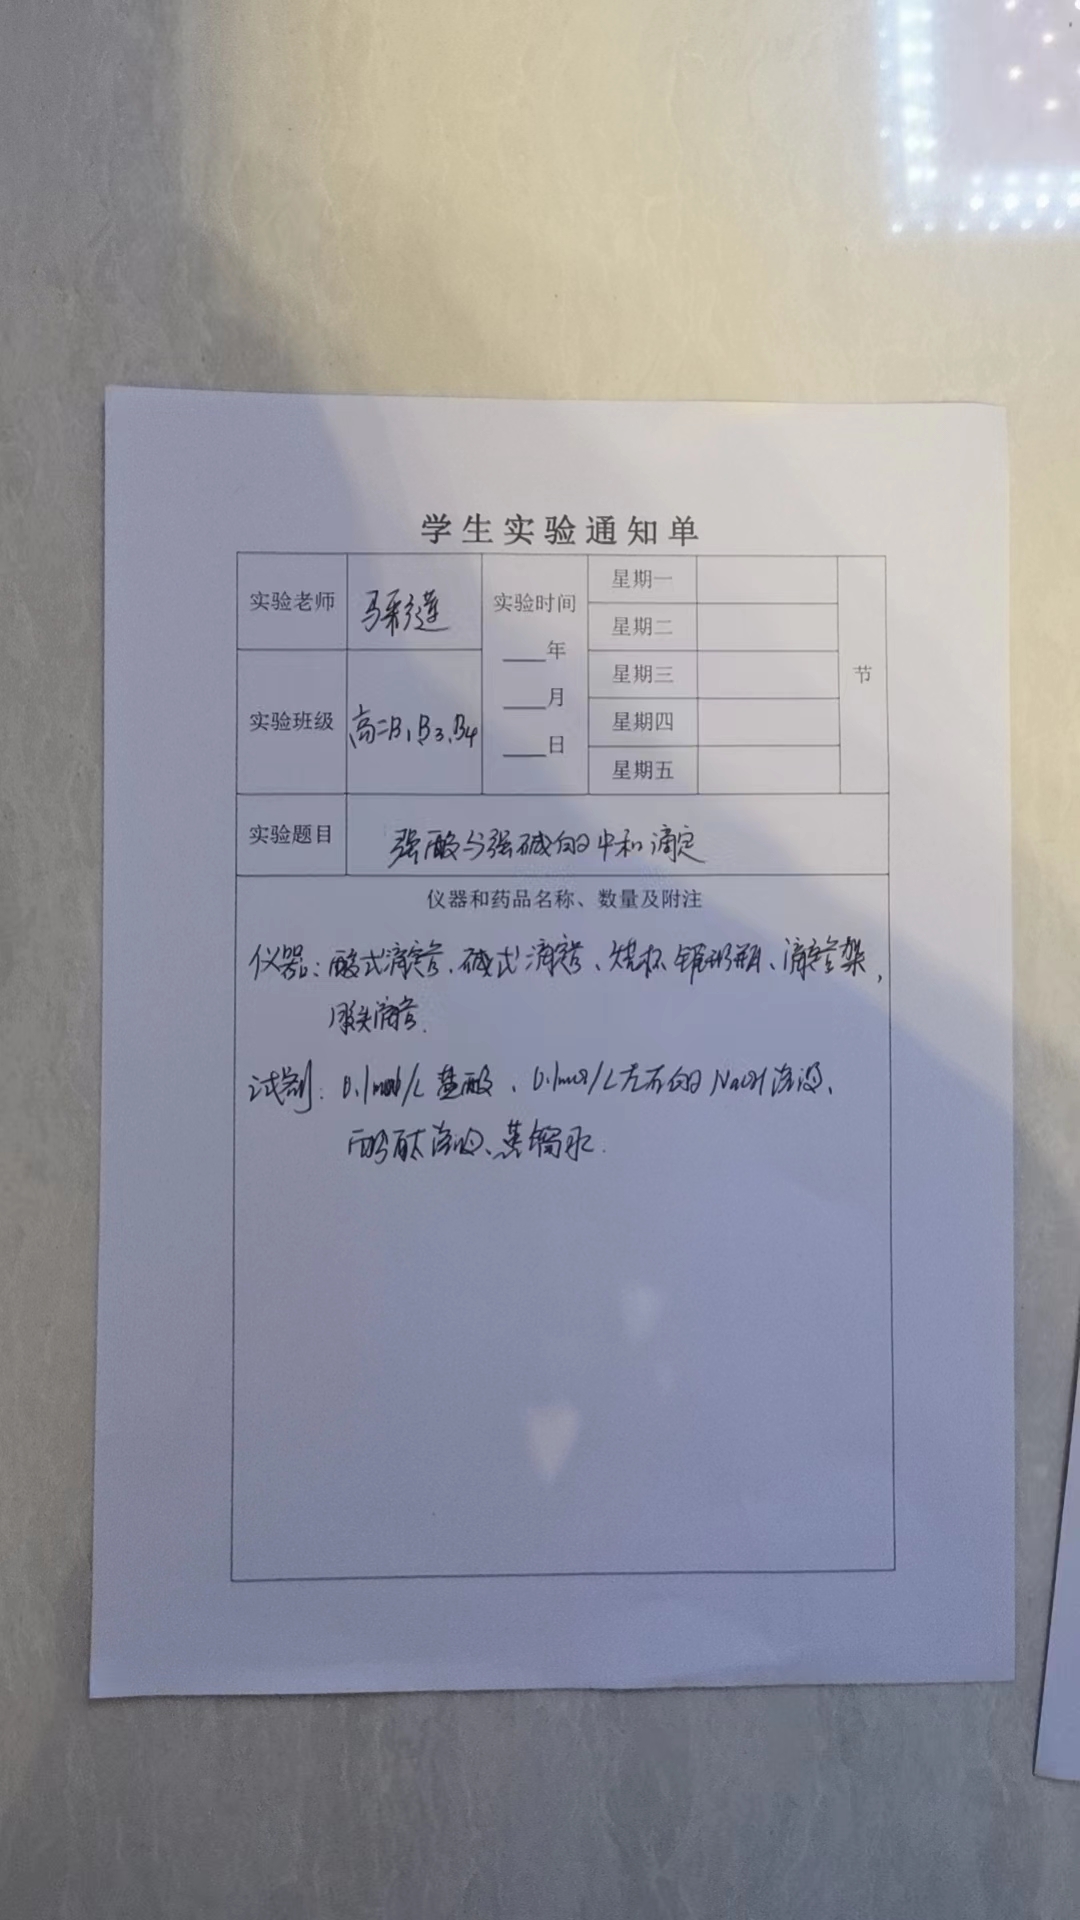 学生实验通知单
实验老师 马彩莲 实验时间 星期一
星期二
___年 星期三 节
实验班级 高二B1、B3、B4 ___月 星期四
___日 星期五
实验题目 强酸与强碱的中和滴定
仪器和药品名称、数量及附注
仪器：酸式滴定管、碱式滴定管、烧杯、锥形瓶、滴定管架，
胶头滴管.
试剂：0.1mol/L 盐酸、0.1mol/L左右的 NaOH 溶液、
酚酞溶液、蒸馏水.